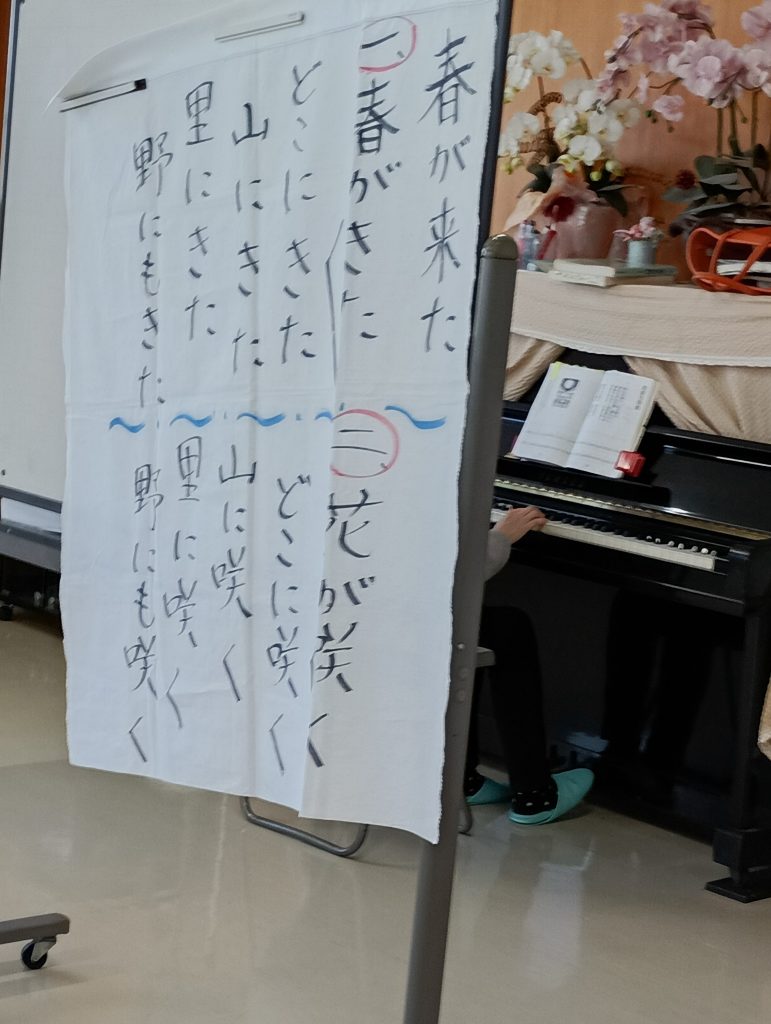 春が来た
一、春がきた
どこにきた
山にきた
里にきた
野にもきた
二、花が咲く
どこに咲く
山に咲く
里に咲く
野にも咲く